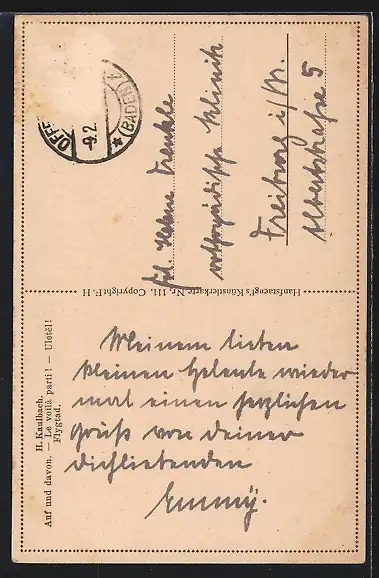 OFFE
-9.2.
* (BADEN) 2
Frl. Helene
orthopädische Klinik
Freiburg i/B.
Albertstraße 5
Hanfstaengl's Künstlerkarte Nr. 111. Copyright F. H
H. Kaulbach.
Auf und davon. — Le voilà parti! — Uletěl!
Flygtad.
Meinem lieben
kleinen Helenle wieder
mal einen herzlichen
Gruß von deiner
dichliebenden
Emmy.